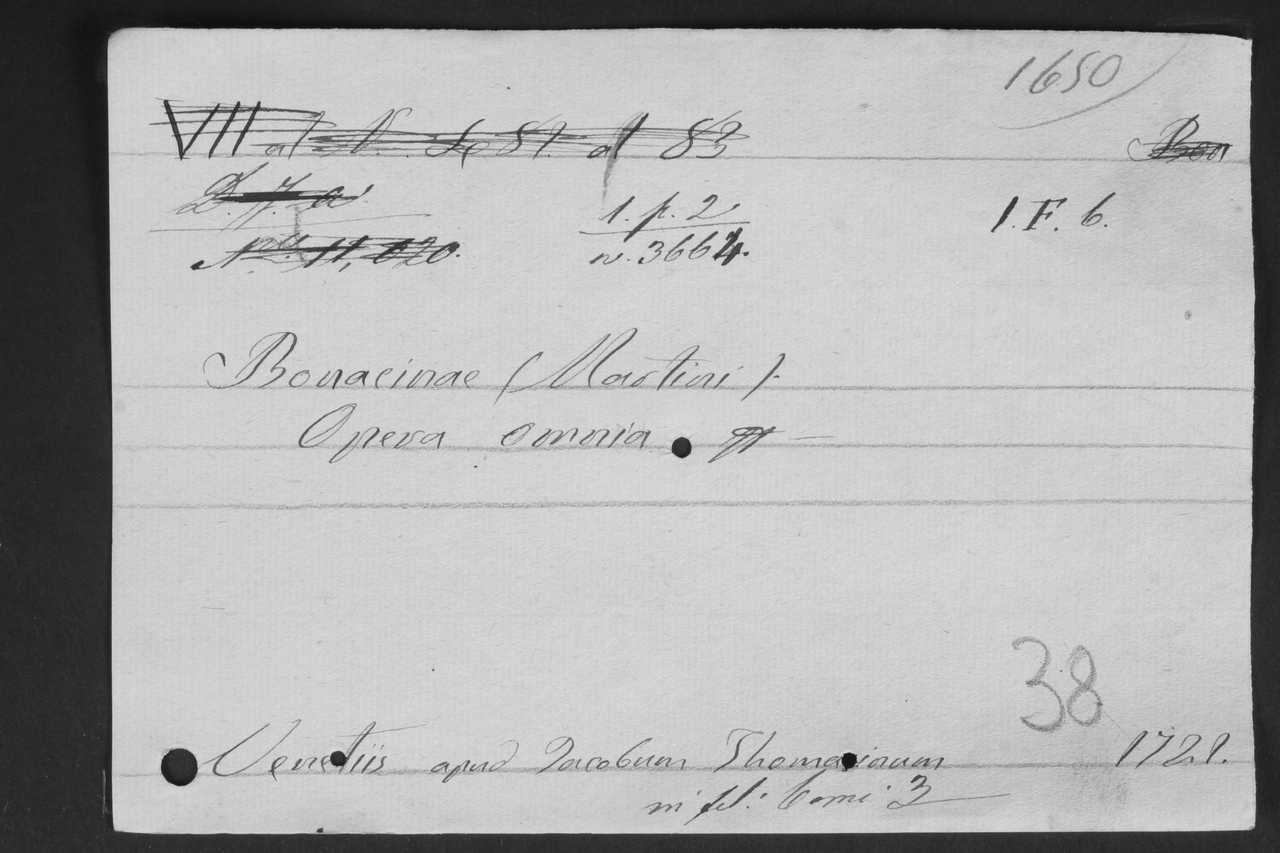 1650
VII
1. p. 2
1. F. 6.
n. 3664.
Bonacinae (Martini).
Opera omnia
38
Venetiis apud Jacobum Thomasinum 1721.
in fol: tomi 3